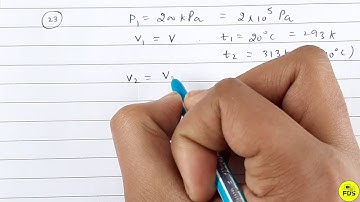 23 P₁ = 200 kPa = 2×10⁵ Pa
V₁ = V t₁ = 20°C = 293k
t₂ = 313k 0°C)
V₂ = V
FDS